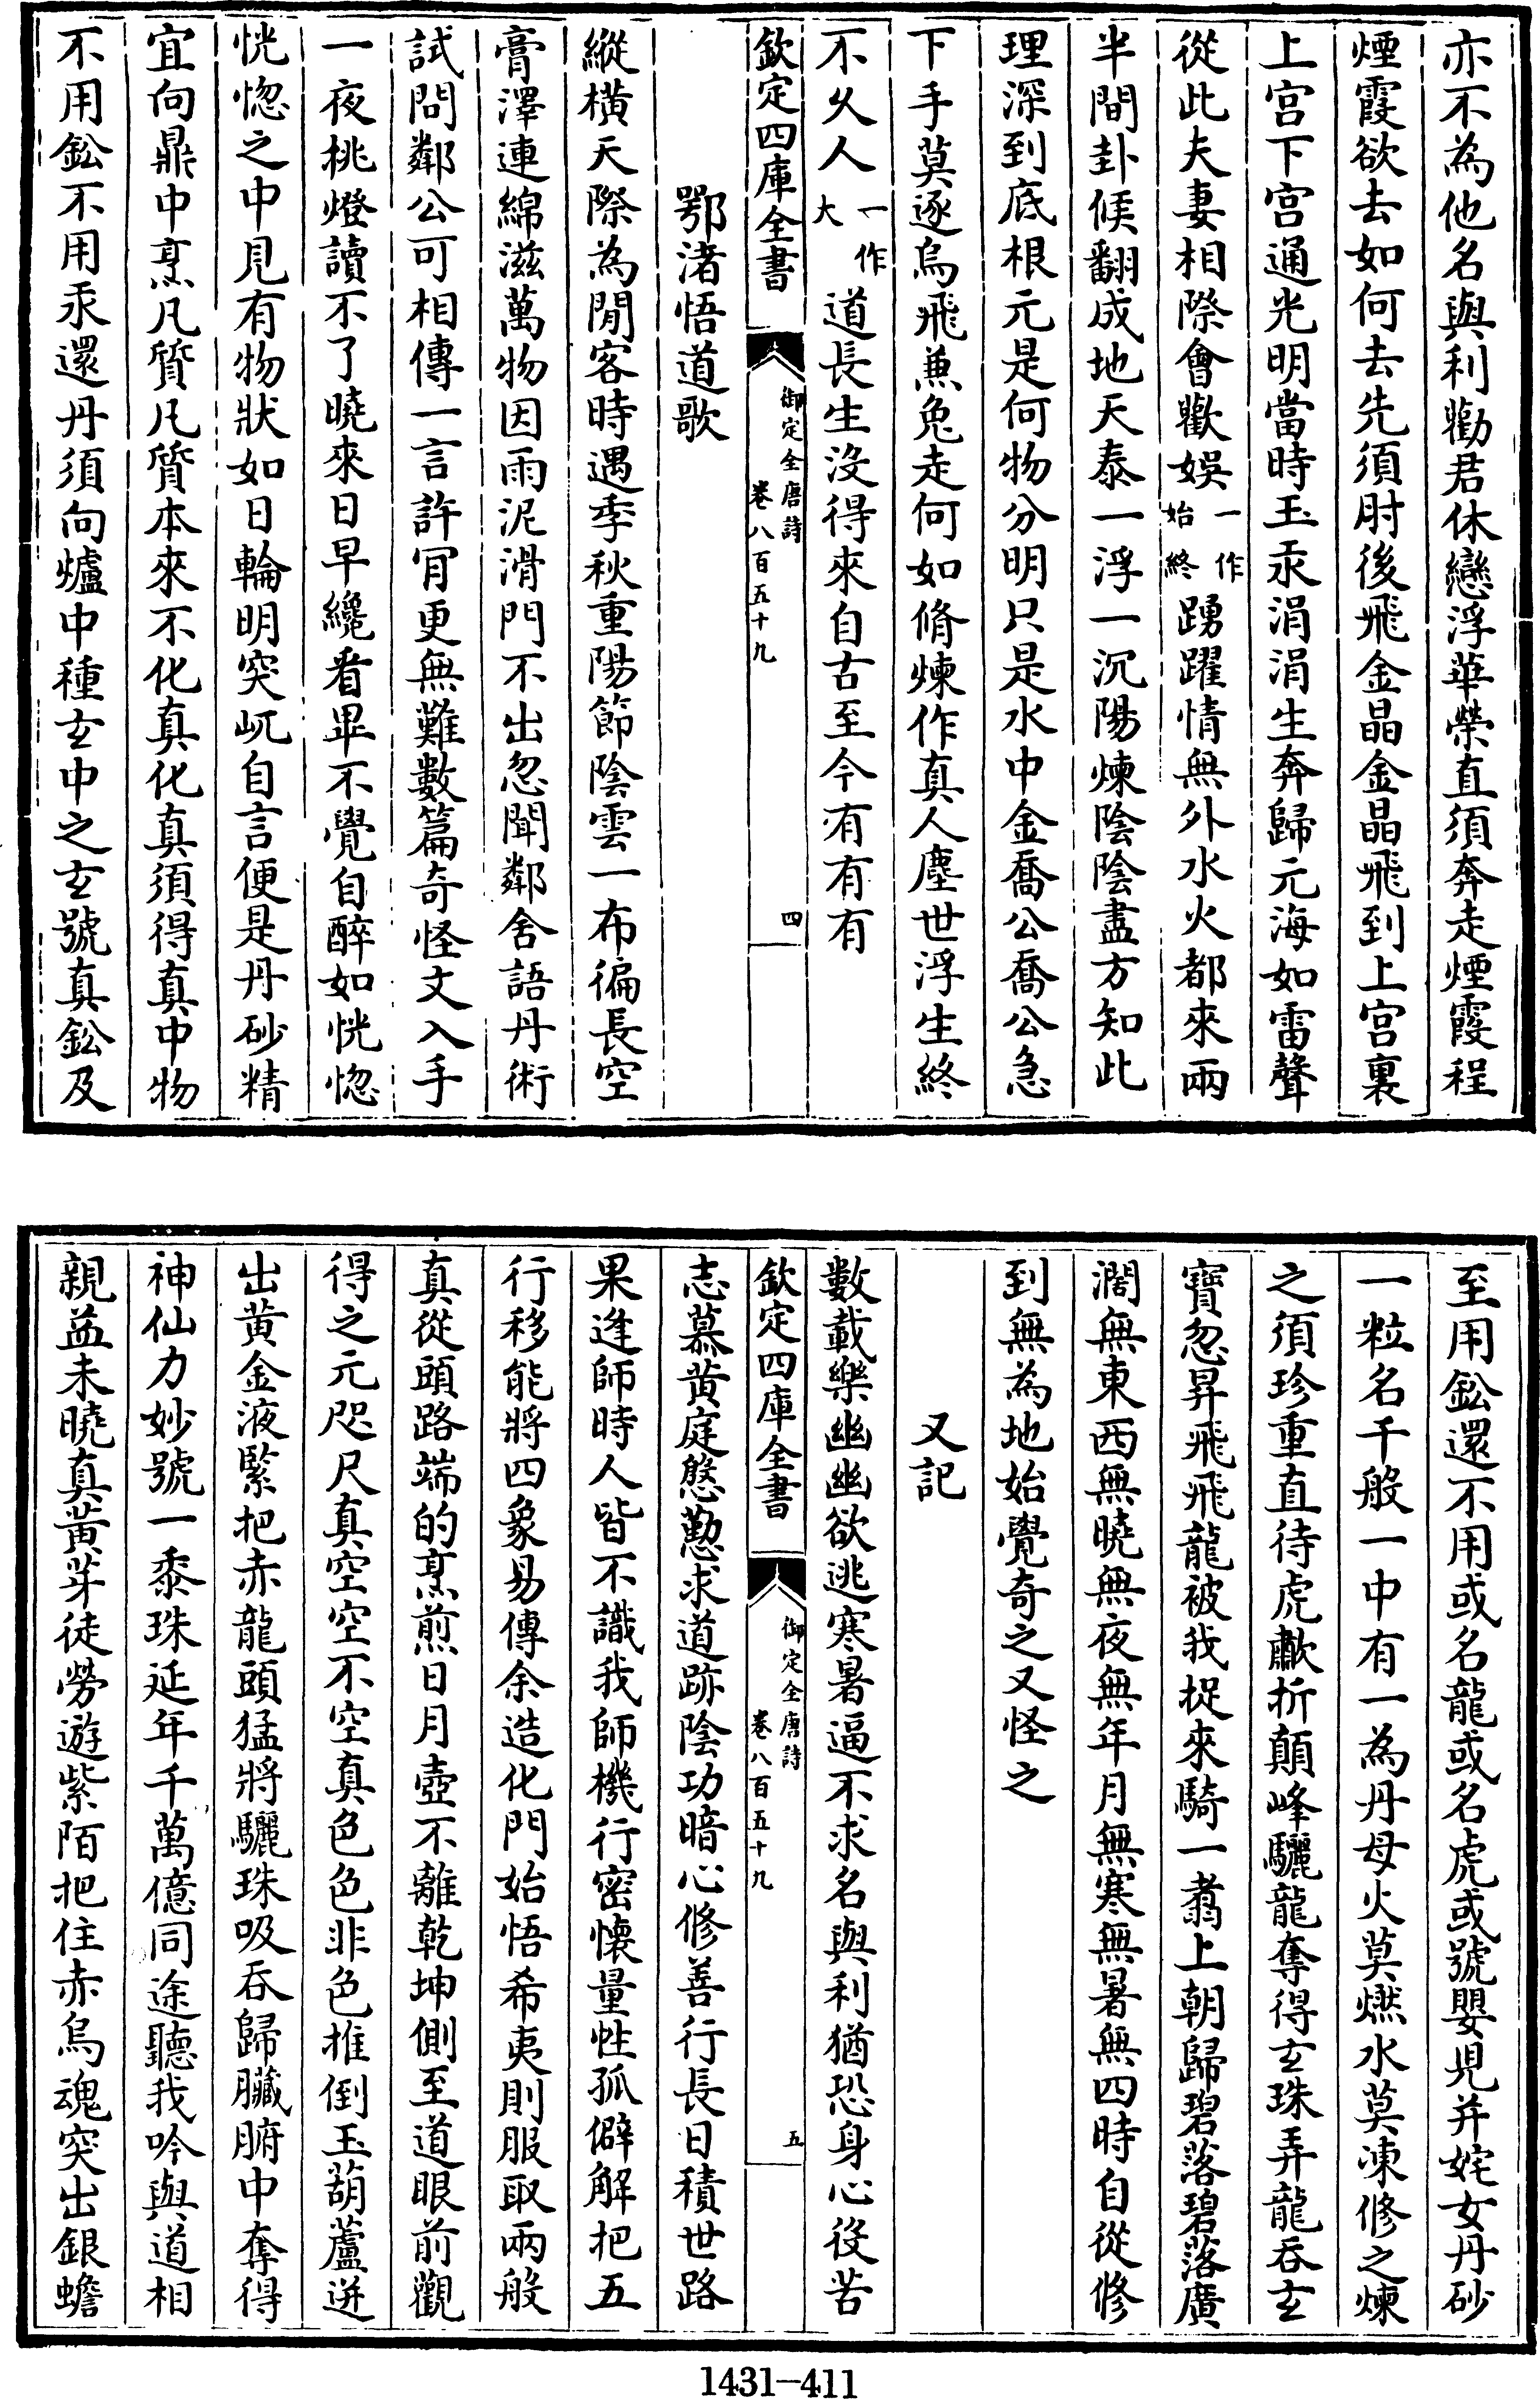 亦不為他名與利勸君休戀浮華榮直須奔走煙霞程
煙霞欲去如何去先須肘後飛金晶金晶飛到上宫裏
上宫下宫通光明當時玉汞涓涓生奔歸元海如雷聲
從此夫妻相際會歡娛一作始終踴躍情無外水火都來兩
半間卦候翻成地天泰一浮一沉陽煉陰陰盡方知此
理深到底根元是何物分明只是水中金喬公喬公急
下手莫逐烏飛兼兔走何如脩煉作真人塵世浮生終
不乆人一作大道長生没得來自古至今有有有
欽定四庫全書
御定全唐詩
卷八百五十九
四
鄂渚悟道歌
縱橫天際為閒客時遇季秋重陽節陰雲一布徧長空
膏澤連綿滋萬物因雨泥滑門不出忽聞鄰舍語丹術
試問鄰公可相傳一言許肎更無難數篇奇怪文入手
一夜挑燈讀不了曉來日早纔看畢不覺自醉如恍惚
恍惚之中見有物狀如日輪明突屼自言便是丹砂精
宜向鼎中烹凡質凡質本來不化真化真須得真中物
不用鈆不用汞還丹須向爐中種玄中之玄號真鈆及
至用鈆還不用或名龍或名虎或號嬰兒并姹女丹砂
一粒名千般一中有一為丹母火莫燃水莫凍修之煉
之須珍重直待虎歗折顛峰驪龍奪得玄珠弄龍吞玄
寶忽昇飛飛龍被我捉來騎一翥上朝歸碧落碧落廣
濶無東西無曉無夜無年月無寒無暑無四時自從修
到無為地始覺奇之又怪之
又記
數載樂幽幽欲逃寒暑逼不求名與利猶恐身心役苦
欽定四庫全書
御定全唐詩
卷八百五十九
五
志慕黄庭慇懃求道跡陰功暗心修善行長日積世路
果逢師時人皆不識我師機行密懷量性孤僻解把五
行移能將四象易傳余造化門始悟希夷則服取兩般
真從頭路端的烹煎日月壺不離乾坤側至道眼前觀
得之元咫尺真空空不空真色色非色推倒玉葫蘆迸
出黄金液緊把赤龍頭猛將驪珠吸吞歸臟腑中奪得
神仙力妙號一黍珠延年千萬億同途聽我吟與道相
親益未曉真黄芽徒勞遊紫陌把住赤烏魂突出銀蟾
1431-411